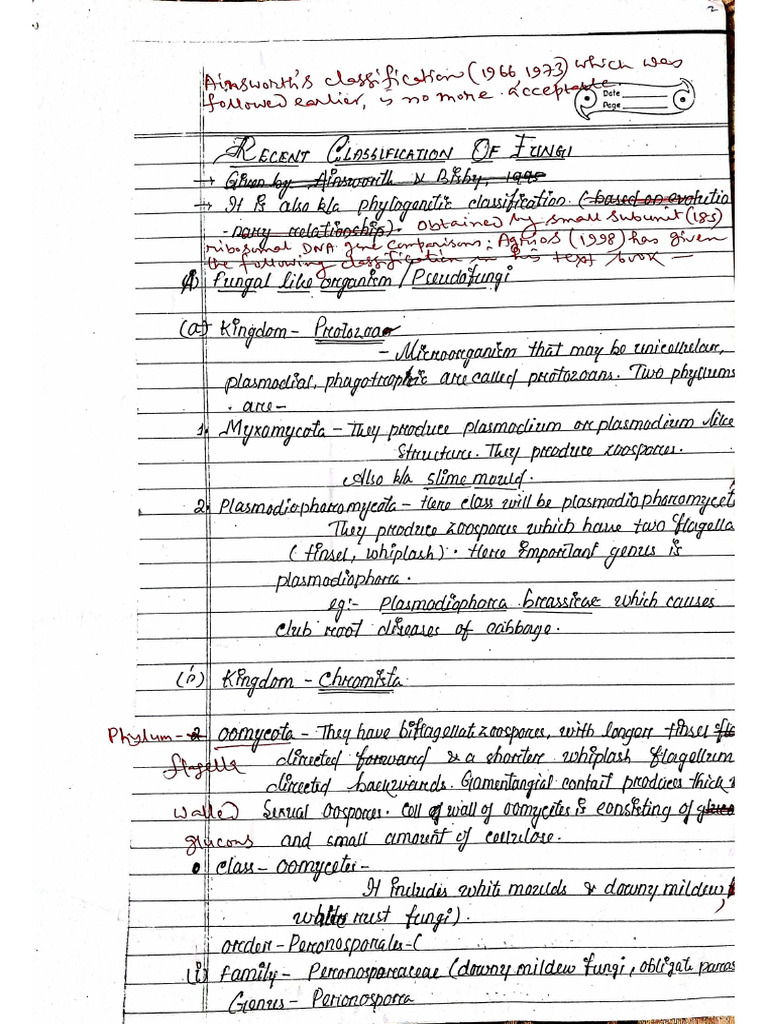 2
Ainsworth's classification (1966, 1973) which was
followed earlier, is no more acceptable.
Date
Page
RECENT CLASSIFICATION OF FUNGI
→ Given by Ainsworth & Bisby, 1995
→ It is also k/a phylogenitic classification. (based on evolutio
-nary relationship). obtained by small subunit (18s)
ribosomal DNA gene comparisons. Agrios (1998) has given
the following classification in his text book —
A) Fungal like organism / Pseudofungi
(a) Kingdom - Protozoa
- Microorganism that may be unicellular,
plasmodial, phagotrophic are called protozoans. Two phyllums
are -
1. Myxomycota - They produce plasmodium or plasmodium like
structure. They produce zoospores.
Also k/a slime mould.
2. Plasmodiophoromycota - Here class will be plasmodiophoromycet
They produce zoospores which have two flagella
(tinsel, whiplash). Here important genus is
plasmodiophora.
eg:- Plasmodiophora brassicae which causes
club root diseases of cabbage.
(b) Kingdom - Chromista
Phylum - 2 oomycota - They have biflagellat zoospores, with longer tinsel fla
flagella directed forward & a shorter whiplash flagellum
directed backwards. Gamentangial contact produces thick
walled Sexual oospores. Cell wall of oomycites is consisting of gluco
glucons and small amount of cellulose.
• class - oomycetes -
It includes white moulds & downy mildew,
white rust fungi).
order - Peronosporales - (
(i) family - Peronosporaceae (downy mildew fungi, obligate paras
Genus - Perionospora